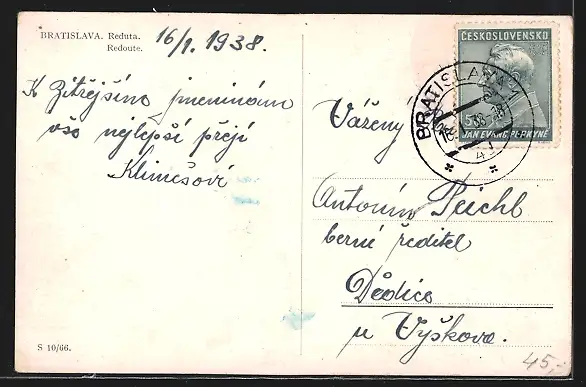 BRATISLAVA. Reduta.
Redoute.
16/1. 1938.
K zítřejším jmeninám
vše nejlepší přejí
Klimešovi
ČESKOSLOVENSKO
50
JAN EVANG. PURKYNĚ
BRATISLAVA
Vážený
Antonín Peichl
berní ředitel
Dědice
u Vyškova.
S 10/66.
45,-